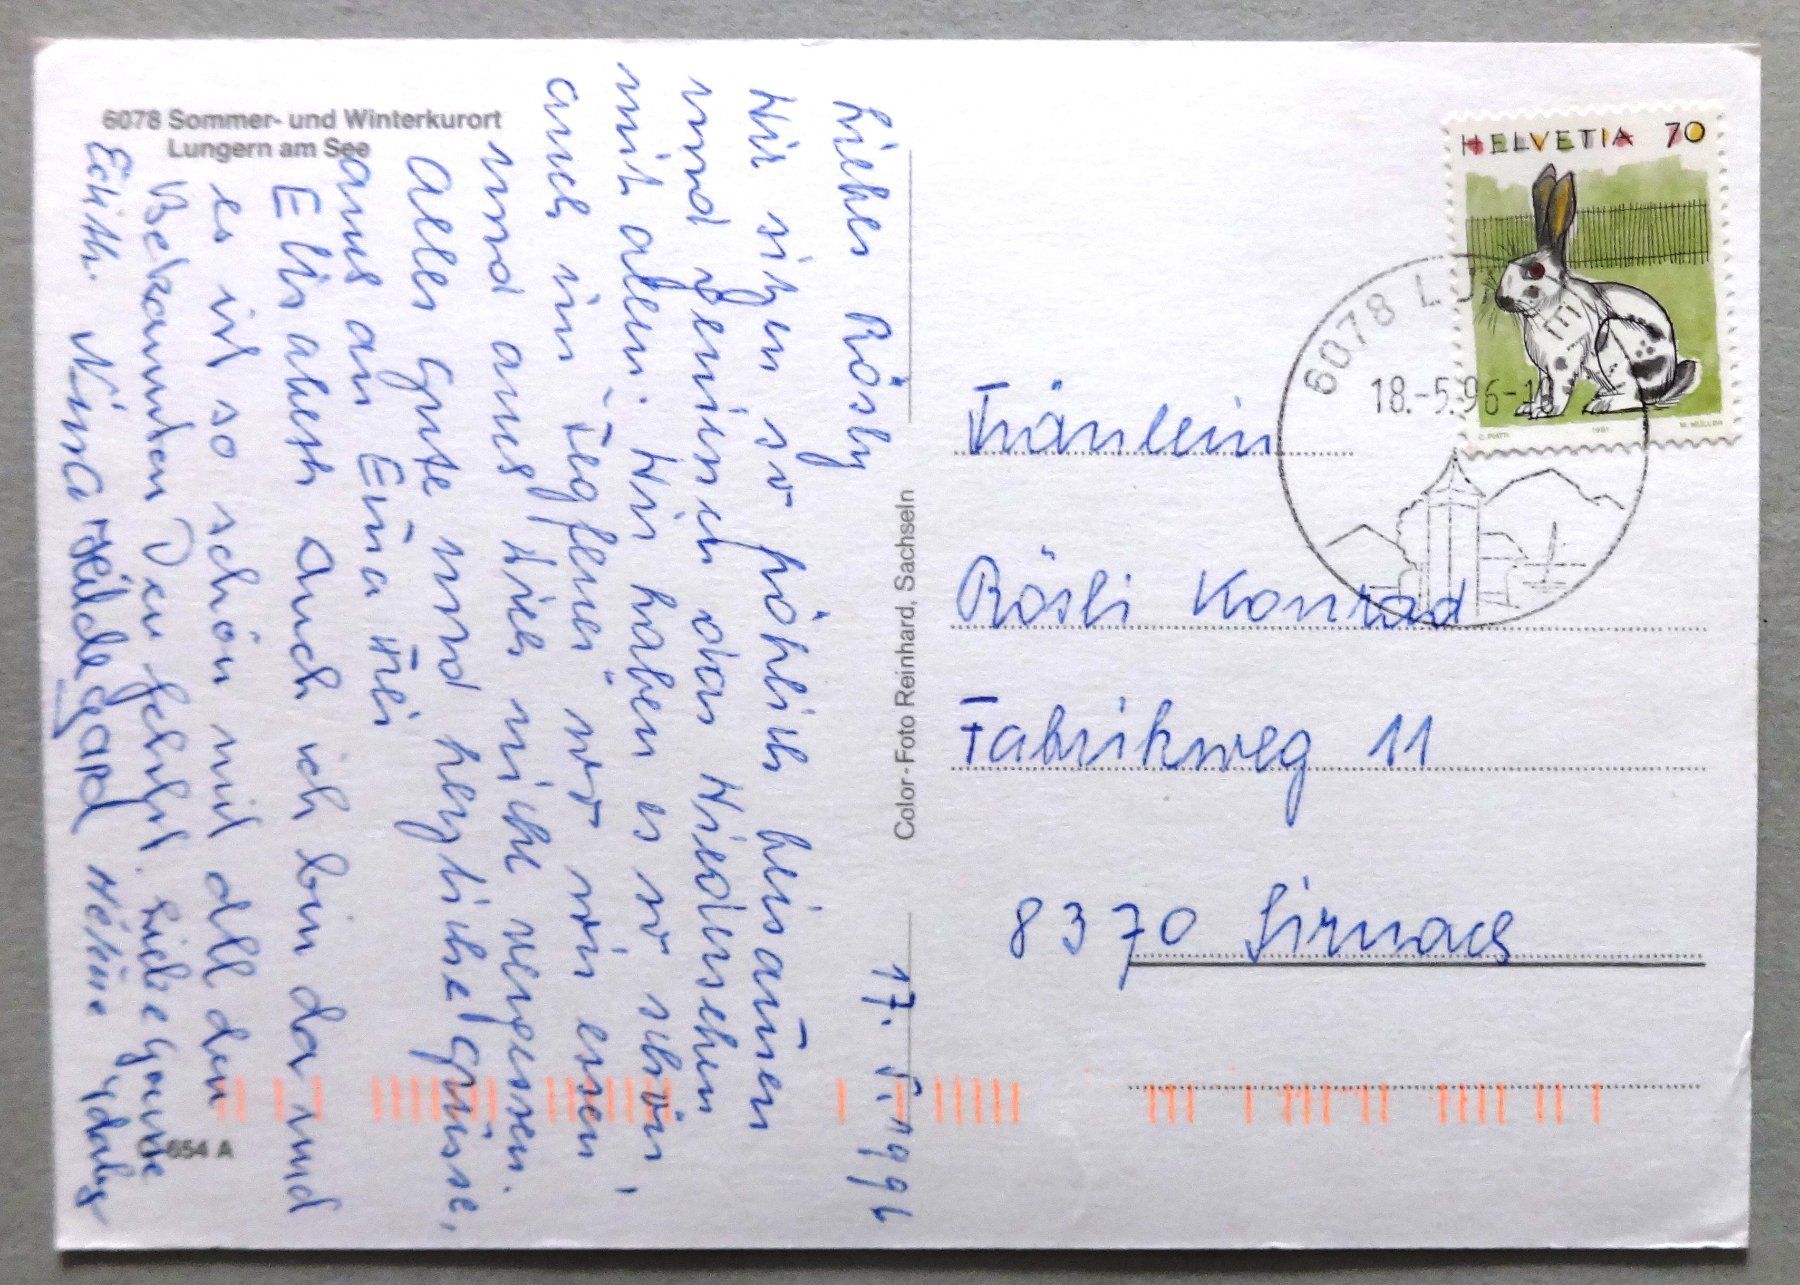 6078 Sommer- und Winterkurort
Lungern am See
17. 5. 1996
Liebes Rösly
Wir sitzen so fröhlich beisamen
und geniesen das Wiedersehen
mit allen. Wir haben es so schön,
auch im Tegfeuer wo wir essen
und auch Dich nicht vergessen.
Alles gute und herzliche Grüsse,
auch an Erna
Elisabeth Auch ich bin da und
es ist so schön mit all den
Bekannten Du fehlst.
Edith. Nina Hildegard
Color-Foto Reinhard, Sachseln
654 A
HELVETIA 70
C. PIATTI 1991 M. MÜLLER
6078 LU
18.-5.96-18
Fräulein
Rösli Konrad
Fabrikweg 11
8370 Sirnach